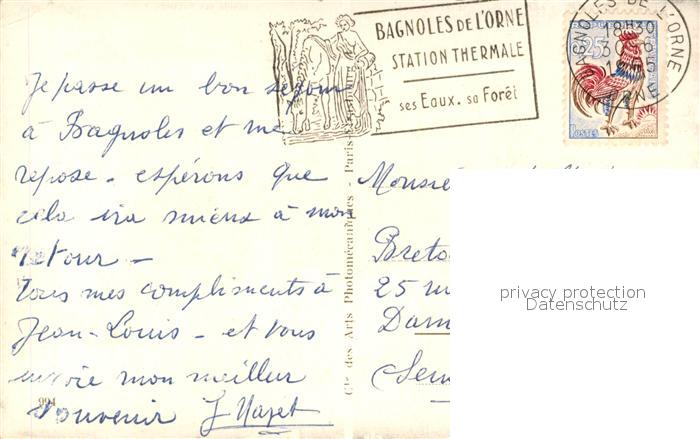 BAGNOLES DE L'ORNE
STATION THERMALE
ses Eaux. sa Forêt
BAGNOLES DE L'ORNE
18H30
ORNE
0,25
POSTES
Je passe un bon séjour
à Bagnoles et me
repose - espérons que
cela ira mieux à mon
retour -
Tous mes compliments à
Jean-Louis - et vous
envoie mon meilleur
souvenir
994
Cie des Arts Photomécaniques - Paris
Monsie
Breto
25
Dam
Sein
privacy protection
Datenschutz